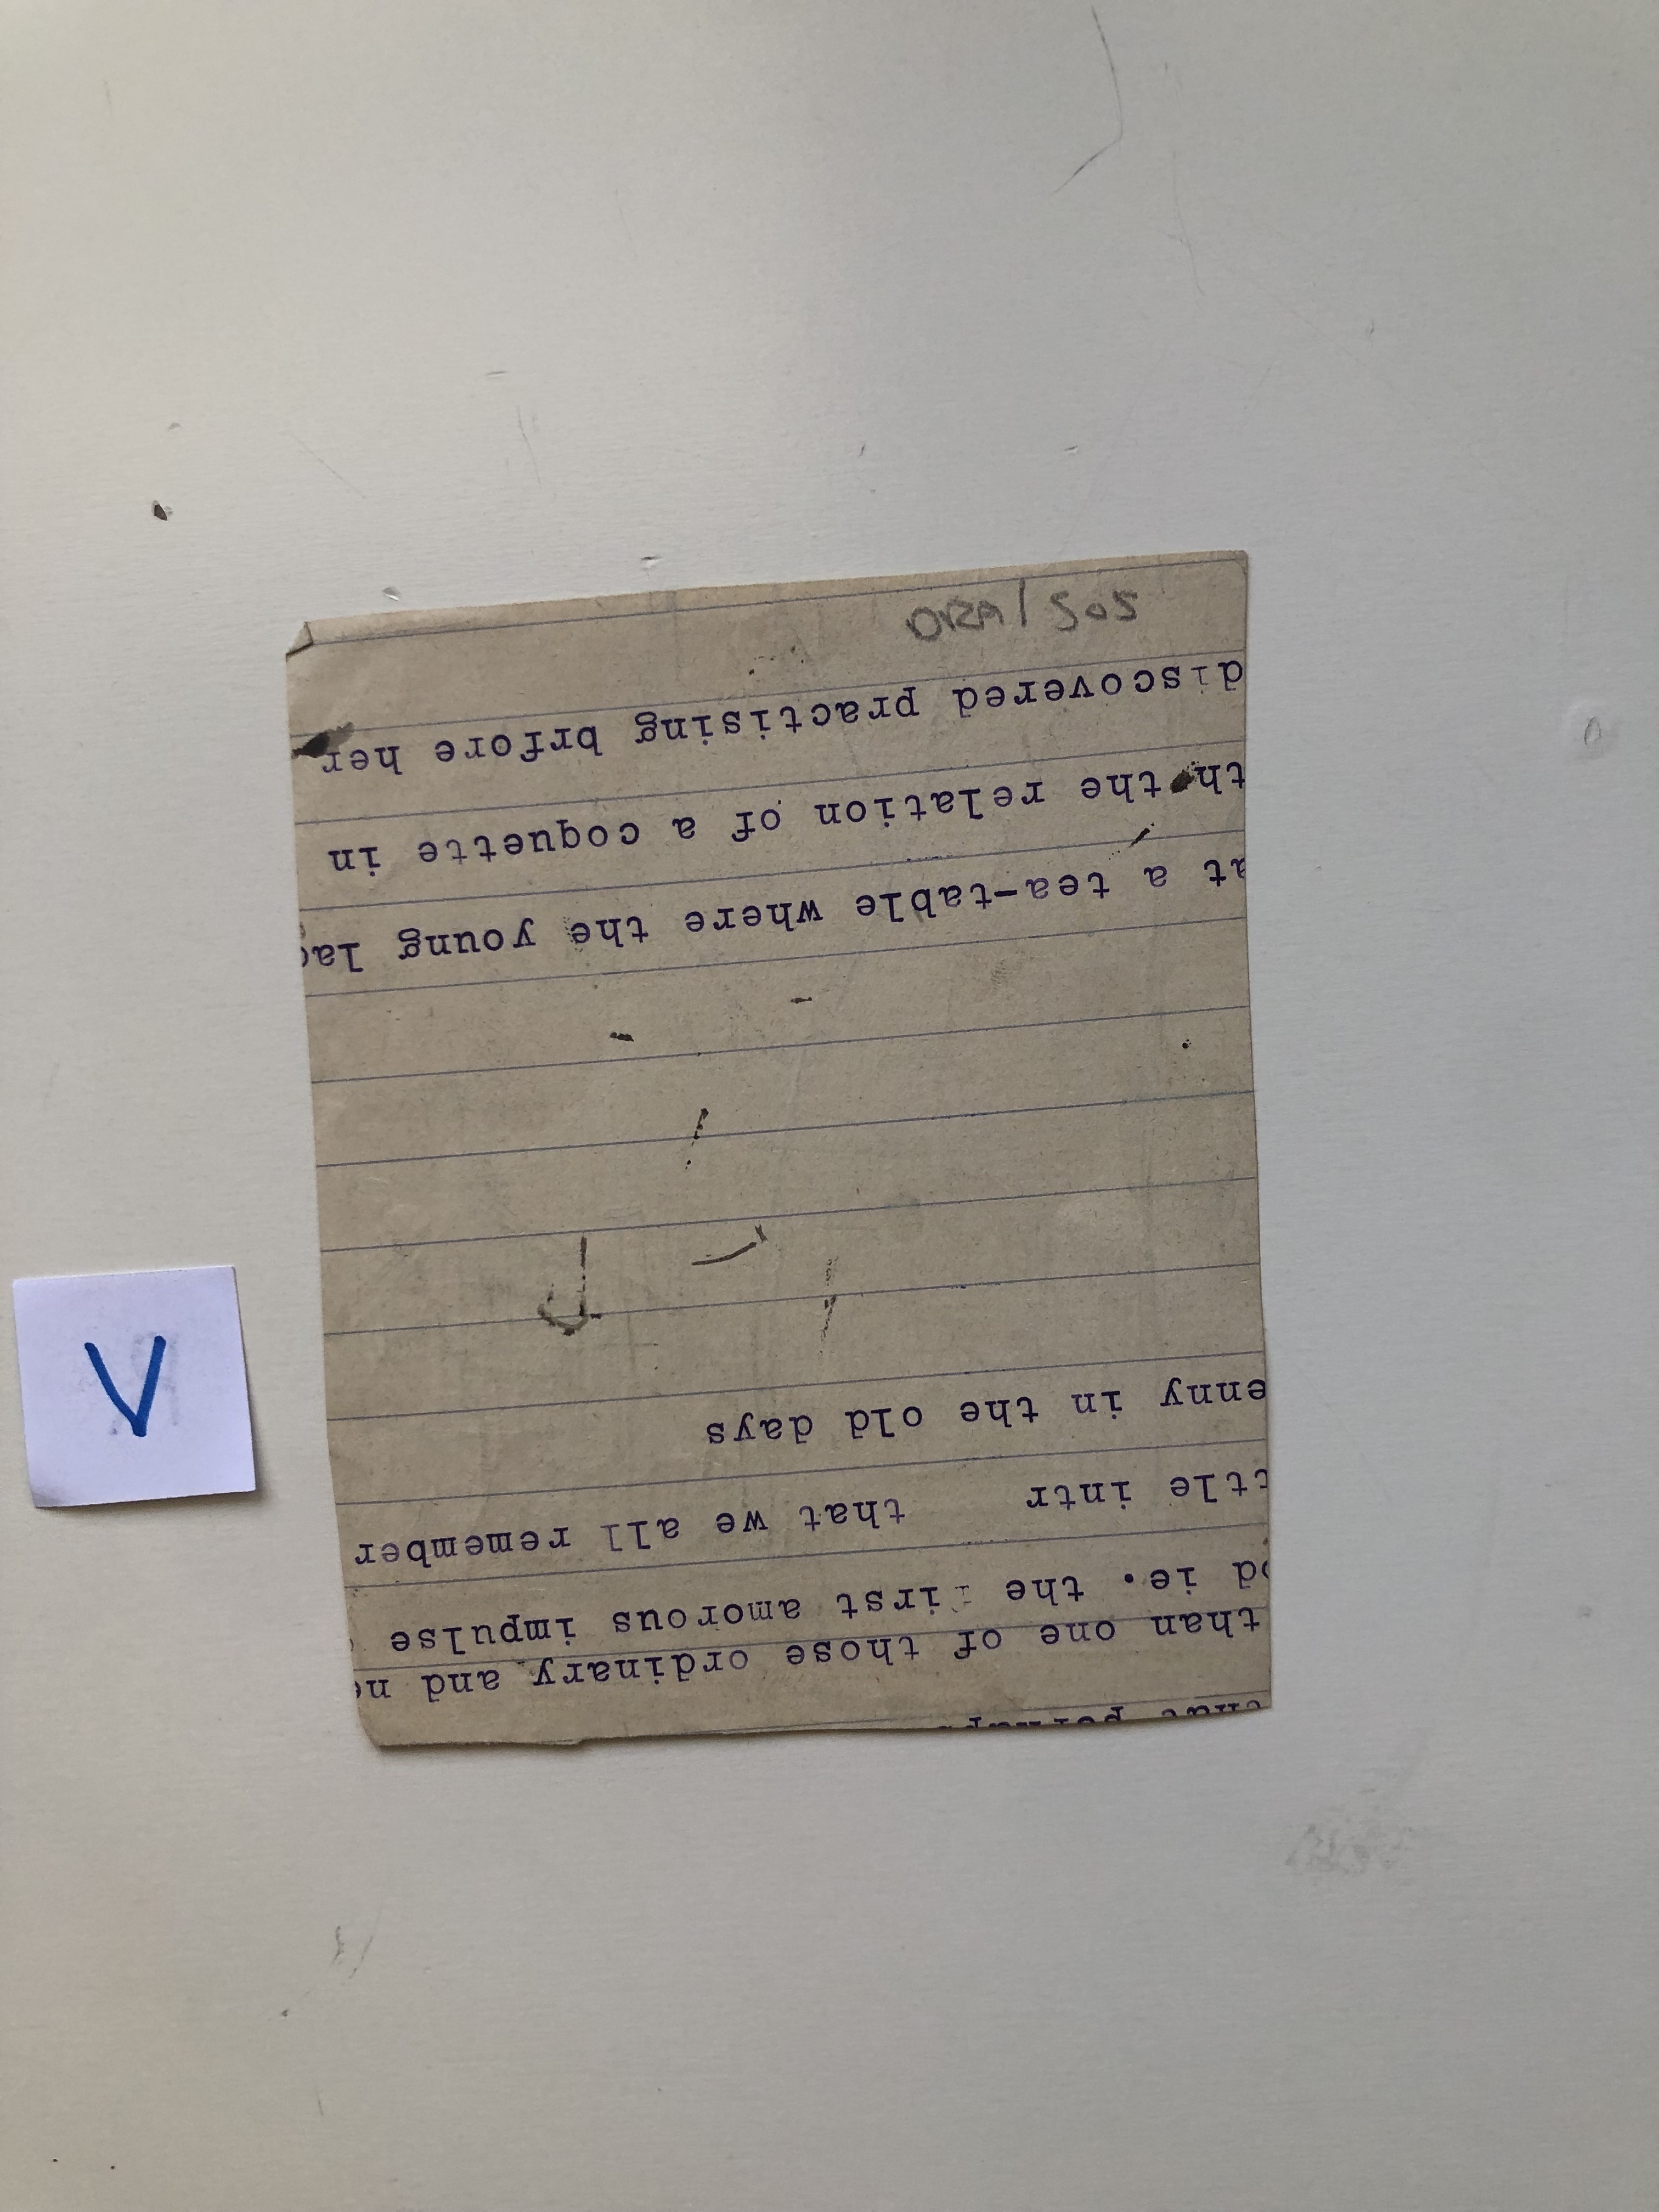 that perhaps
than one of those ordinary and
ie. the first amorous impulse
ttle intr that we all remember
enny in the old days
at a tea-table where the young
th the relation of a coquette in
discovered practising brfore her
DRA/505
V